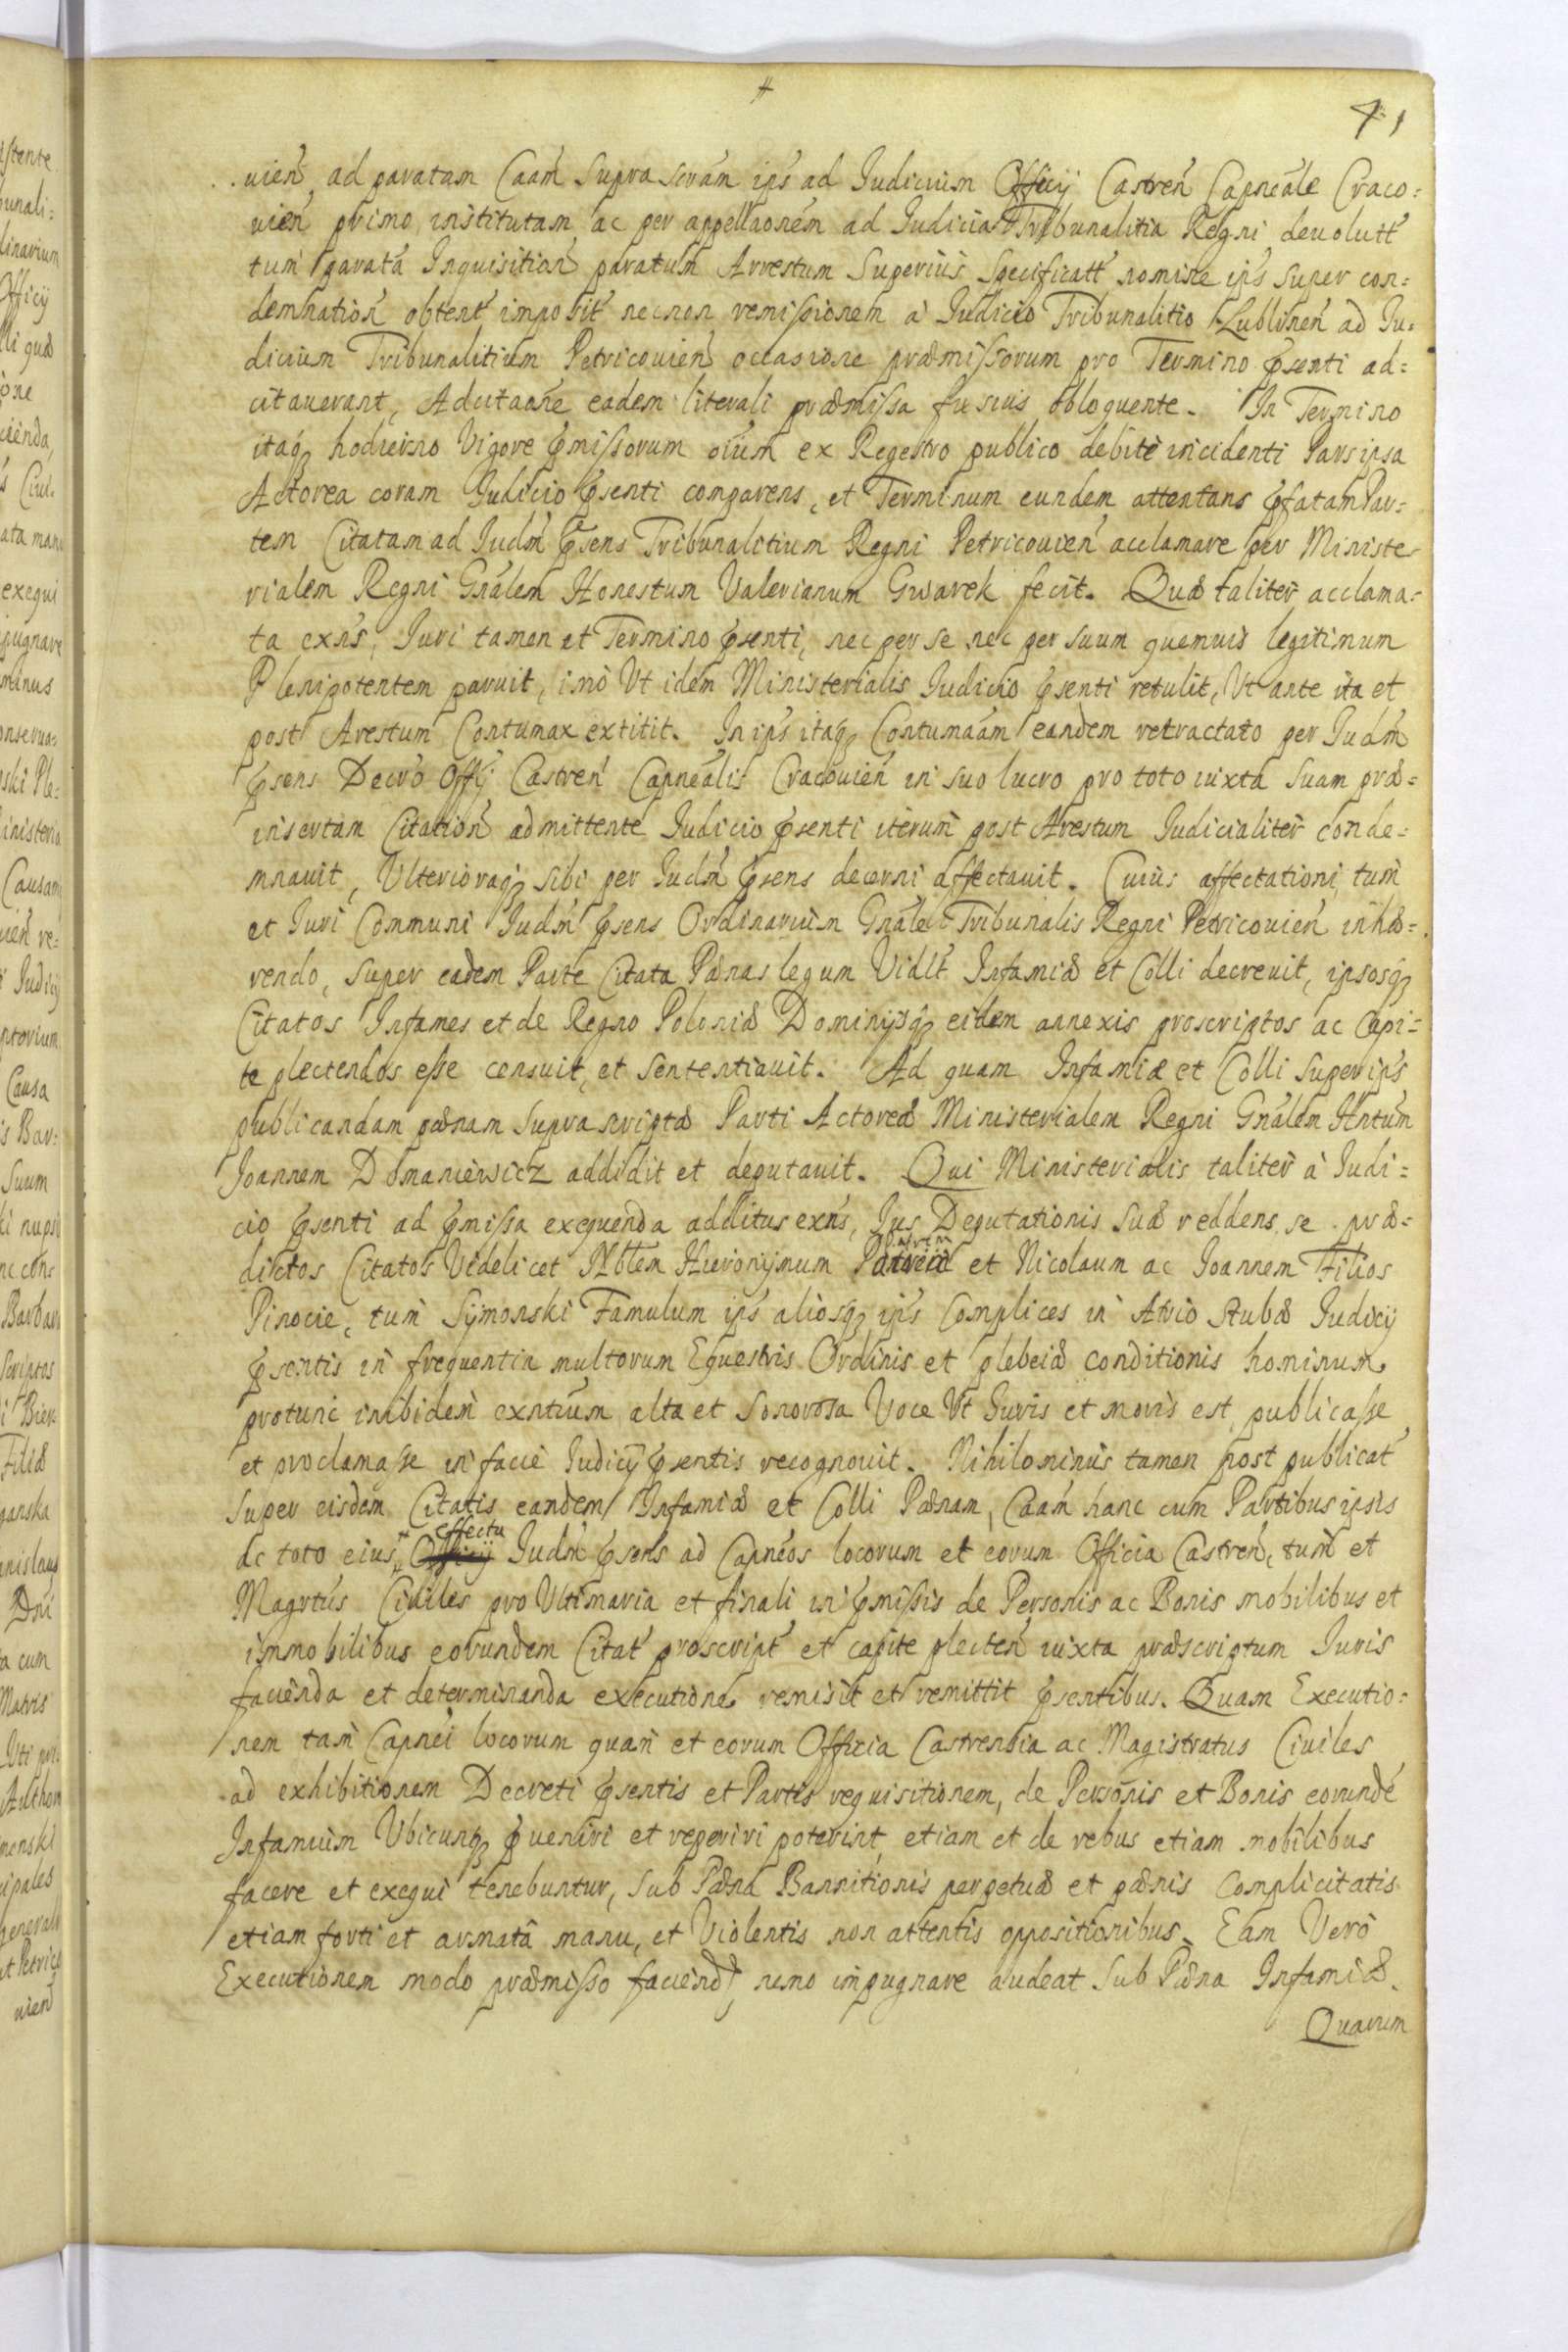 41
uień ad paratam Caam̃ Suprascram̃ ips̃ ad Iudicium Officij Castreń Capneále Craco=
uień primo institutam ac per appellaonem̃ ad Iudicia Tribunalitia Regni deuolutt̃
tum parata Inquisition̄ paratum Arrestum Superius Specificatt̃ nomine ips̃ super con=
demnation̄ obtent̃ imposit̃ necnon remissionem à Iudicio Tribunalitio Lublineń ad Iu=
dicium Tribunalitium Petricouień occasione præmissorum pro Termino p̃senti ad=
citauerant, Adcitaõne eadem literali præmissa fusius obloquente. In Termino
itaq̃ hodierno Vigore p̃missorum oium̃ ex Regestro publico debitè incidenti Pars ipsa
Actorea coram Iudicio p̃senti comparens, et Terminum eundem attentans p̃fatam Par=
tem Citatam ad Iudm̃ p̃sens Tribunalitium Regni Petricouień acclamare per Ministe=
rialem Regni Gnãlem Honestum Valerianum Gwarek fecit. Quæ taliter acclama=
ta exñs, Iuri tamen et Termino p̃senti, nec per se nec per suum quemuis legitimum
Plenipotentem paruit, imò Vt idem Ministerialis Iudicio p̃senti retulit, Vt ante ita et
post Arestum Contumax extitit. In ips̃ itaq̃ Contumaam̃ eandem retractato per Iudm̃
p̃sens Decro̅ Offij Castreń Capneális Cracouień in suo lucro pro toto iuxta suam præ=
insertam Citation̄ admittente Iudicio p̃senti iterum post Arestum Iudicialiter conde=
mnauit, Vlterioraq̃ sibi per Iudm̃ p̃sens decerni affectauit. Cuius affectationi, tum
et Iuri Communi Iudm̃ p̃sens Ordinarium Gnãle Tribunalis Regni Petricouień inhæ=
rendo, super eadem Parte Citata Pænas legum Vidlt̃ Infamiæ et Colli decreuit, ipsosq̃
Citatos Infames et de Regno Poloniæ Dominijsq̃ eidem annexis proscriptos ac Capi=
te plectendos esse censuit, et sententiauit. Ad quam Infamiæ et Colli super ips̃
publicandam pænam suprascriptæ Parti Actoreæ Ministerialem Regni Gnãlem Hntum̃
Joannem Domaniewicz addidit et deputauit. Qui Ministerialis taliter à Iudi=
cio p̃senti ad p̃missa exequenda additus exñs, Ius Deputationis suæ reddens, se præ=
dictos Citatos Videlicet Nblem̃ Hieronijmum Patrem et Nicolaum ac Joannem Filios
Pinocie, tum Sijmonski Famulum ips̃ aliosq̃ ips̃ Complices in Atrio Stubæ Iudicij
p̃sentis in frequentia multorum Equestris Ordinis et plebeiæ conditionis hominum
protunc inibidem exntium̃ alta et Sonorosa Voce Vt Iuris et moris est publicasse
et proclamasse in facie Iudicij p̃sentis recognouit. Nihilominus tamen post publicat̃
super eisdem Citatis eandem Infamiæ et Colli Pænam, Caam̃ hanc cum Partibus ipsis
de toto eius effectu Iudm̃ p̃sens ad Capneos̃ locorum et eorum Officia Castreń, tum et
Magrtus̃ Ciuiles pro Vltimaria et finali in p̃missis de Personis ac Bonis mobilibus et
immobilibus eorundem Citat̃ proscript̃ et capite plecteń iuxta præscriptum Iuris
facienda et determinanda executione remisit et remittit p̃sentibus. Quam Executio=
nem tam Capnei̅ locorum quam et eorum Officia Castrensia ac Magistratus Ciuiles
ad exhibitionem Decreti p̃sentis et Partis requisitionem, de Personis et Bonis eorundẽ
Infamium Vbicunq̃ p̃ueniri et reperiri poterint, etiam et de rebus etiam mobilibus
facere et exequi tenebuntur, sub Pæna Bannitionis perpetuæ et pænis Complicitatis
etiam forti et armatâ manu, et Violentis non attentis oppositionibus. Eam Verò
Executionem modo præmisso faciend̃ nemo impugnare audeat sub Pæna Infamiæ.
Quarum